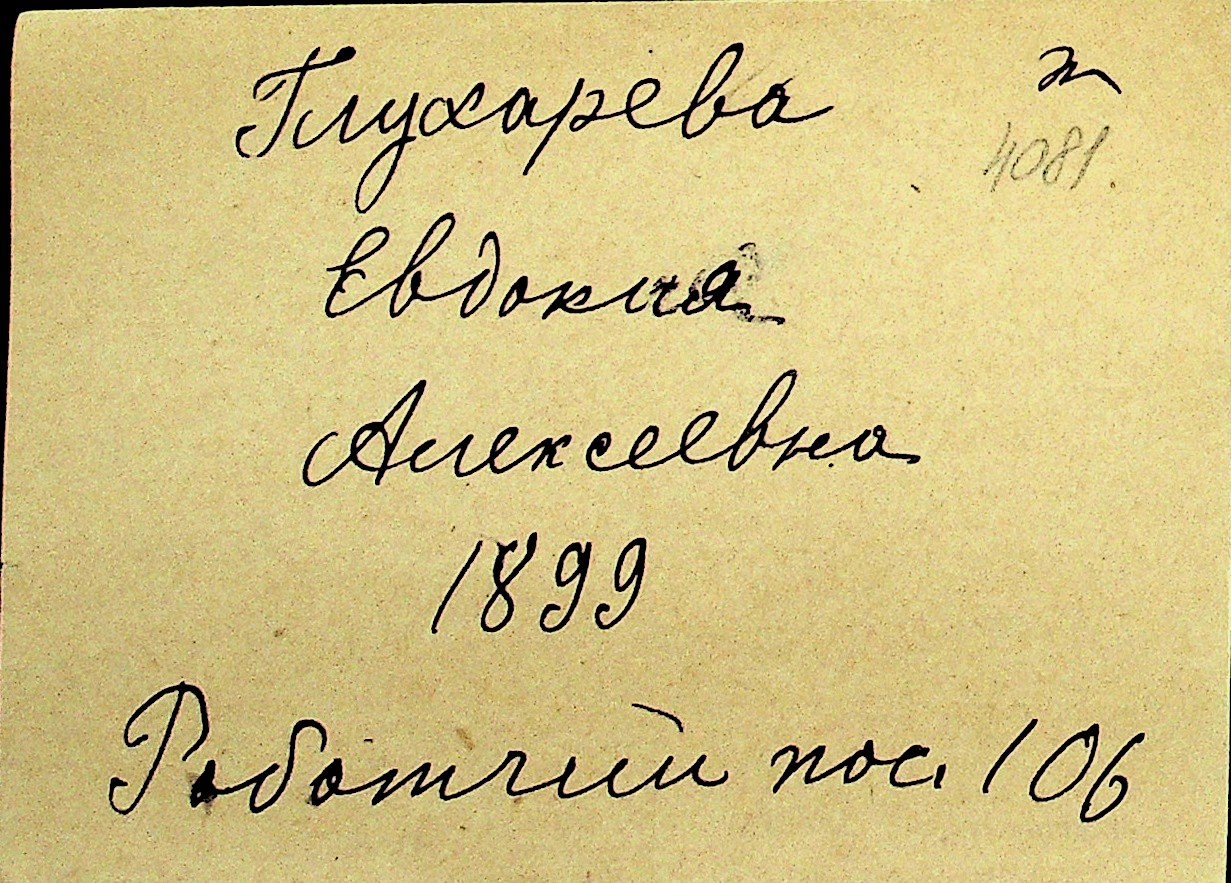 Глухарева
4081.
Евдокия
Алексеевна
1899
Работчий пос. 106